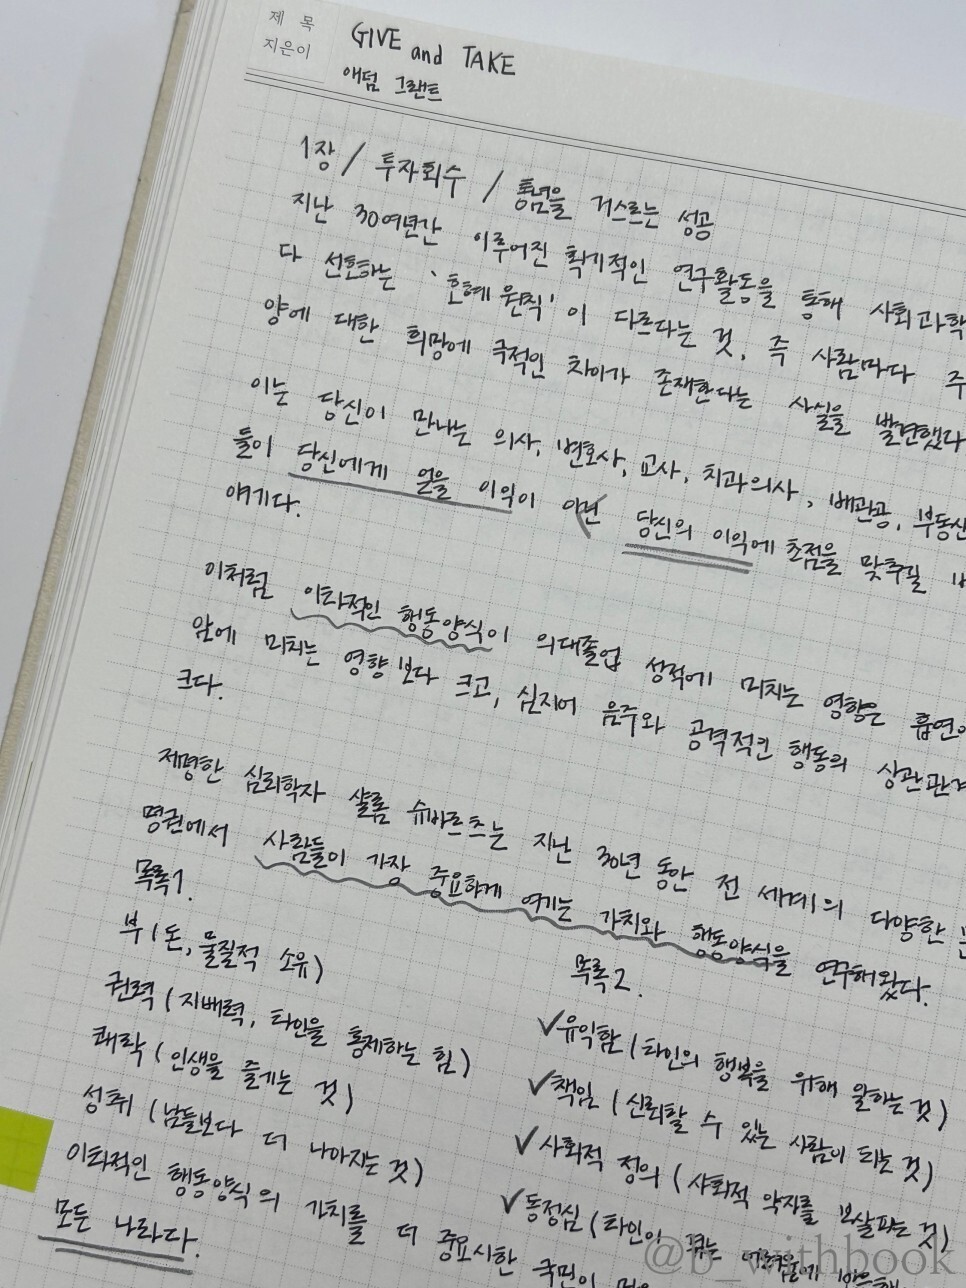 제 목 GIVE and TAKE
지은이 애덤 그랜트
1장 / 투자회수 / 통념을 거스르는 성공
지난 30여년간 이루어진 획기적인 연구활동을 통해 사회과학
다 선호하는 '호혜 원칙'이 다르다는 것, 즉 사람마다 주
양에 대한 희망에 극적인 차이가 존재한다는 사실을 발견했다
이는 당신이 만나는 의사, 변호사, 교사, 치과의사, 배관공, 부동산
들이 당신에게 얻을 이익이 아닌 당신의 이익에 초점을 맞추길
얘기다.
이처럼 이타적인 행동양식이 의대졸업 성적에 미치는 영향은 흡연이
암에 미치는 영향보다 크고, 심지어 음주와 공격적인 행동의 상관관계
크다.
저명한 심리학자 샬롬 슈바르츠는 지난 30년 동안 전 세계의 다양한
명권에서 사람들이 가장 중요하게 여기는 가치와 행동양식을 연구해왔다.
목록1.
부(돈, 물질적 소유)
권력(지배력, 타인을 통제하는 힘)
쾌락(인생을 즐기는 것)
성취(남들보다 더 나아지는 것)
목록2.
✓유익함(타인의 행복을 위해 일하는 것)
✓책임(신뢰할 수 있는 사람이 되는 것)
✓사회적 정의(사회적 약자를 보살피는 것)
✓동정심(타인이 겪는 어려움에
이타적인 행동양식의 가치를 더 중요시한 국민이
모든 나라다.
@b_withbook